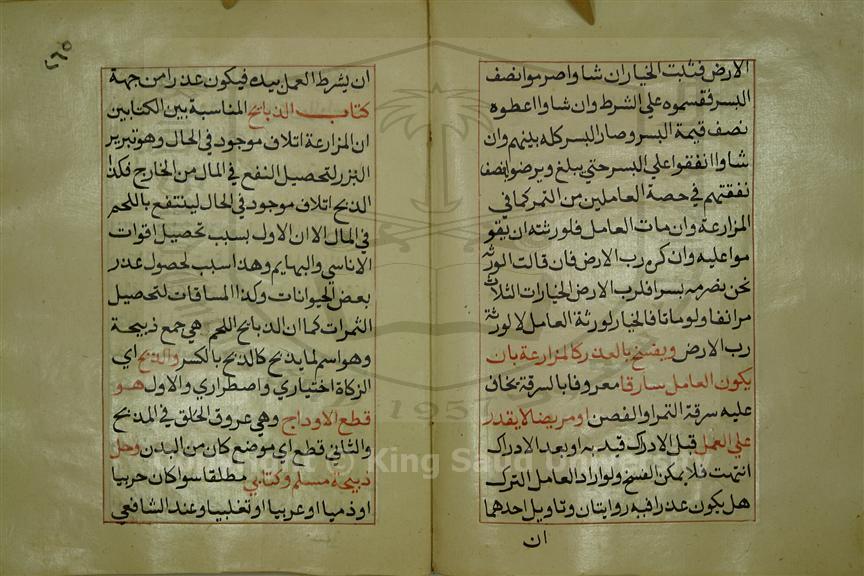 الارض فثبت الخيار ان شاوا صرموا نصف
البسر فقسموه علي الشرط وان شاوا اعطوه
نصف قيمة البسر وصار البسر كله بينهم وان
شاوا انفقوا علي البسر حتي يبلغ ويرضوا نصف
نفقتهم في حصة العاملين من التمر كما في
المزارعة وان مات العامل فلورثته ان يقو
موا عليه وان كره رب الارض فان قالت الورثة
نحن نصرمه بسرا فلرب الارض الخيارات الثلاث
مر انفا ولو ماتا فالخيار لورثة العامل لا لورثة
رب الارض ويفسخ بالعذر كالمزارعة بان
يكون العامل سارقا معروفا بالسرقة يخاف
عليه سرقة التمر او الفصن او مريضا لا يقدر
علي العمل قبل الادراك قيد به او بعد الادراك
انتهت فلا يمكن الفسخ ولو اراد العامل الترك
هل يكون عذرا فيه روايتان وتاويل احدهما
ان
٤٦٥
ان يشرط العمل بيده فيكون عذرا من جهة
كتاب الذبايح المناسبة بين الكتابين
ان المزارعة اتلاف موجود في الحال وهو تبرير
البزر لتحصيل النفع في المال من الخارج فكذا
الذبح اتلاف موجود في الحال لينتفع باللحم
في المال الا ان الاول بسبب تحصيل اقوات
الاناسي والبهايم وهذا سبب لحصول عذر
بعض الحيوانات وكذا المساقات لتحصيل
الثمرات كما ان الذبايح اللحم هي جمع ذبيحة
وهو اسم لما يذبح كالذبح بالكسر والذبح اي
الزكاة اختياري واضطراري والاول هو
قطع الاوداج وهي عروق الحلق في المذبح
والثاني قطع اي موضع كان من البدن وحل
ذبيحة مسلم وكتابي مطلقا سوا كان حربيا
او ذميا او عربيا او تغلبيا وعند الشافعي
1957
Copyright © King Saud University